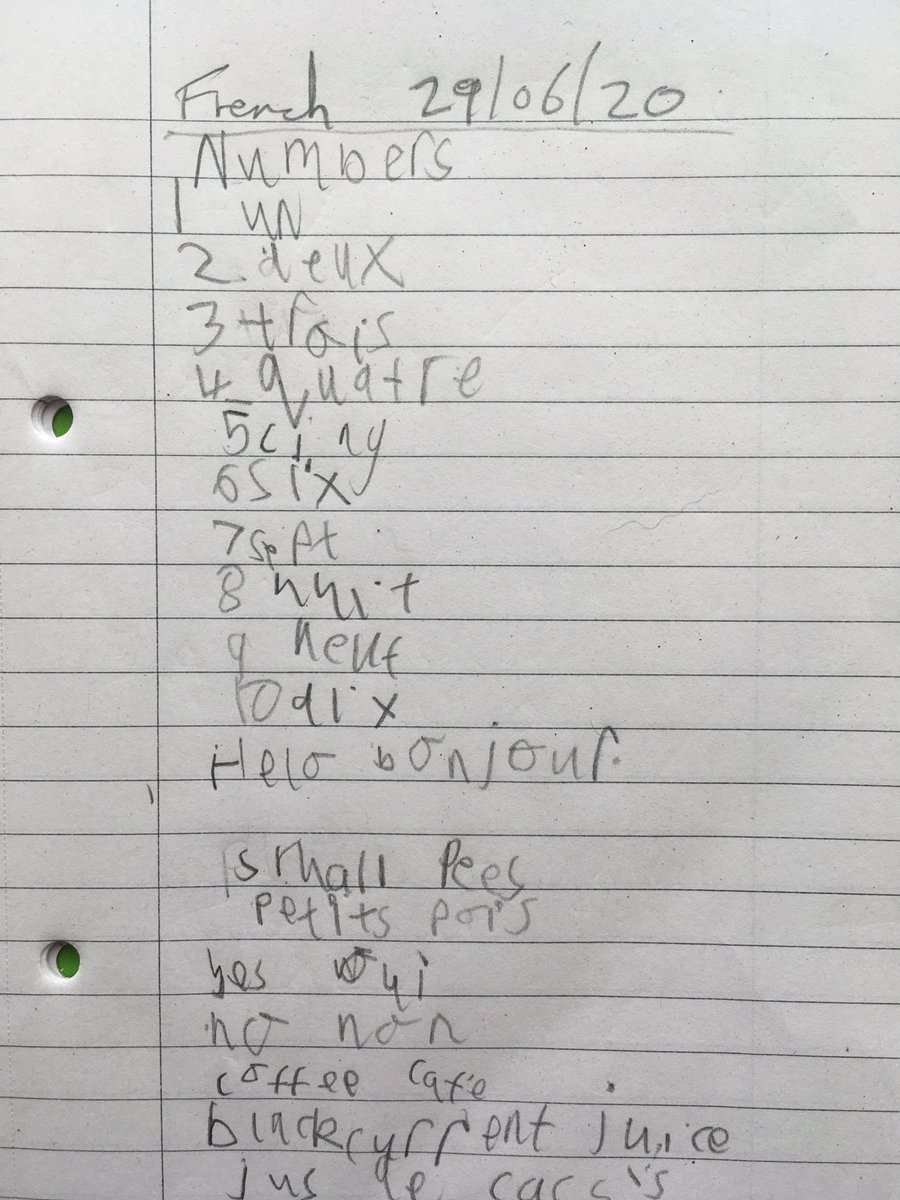 French 29/06/20
Numbers
1 un
2 deux
3 trois
4 quatre
5 cinq
6 six
7 sept
8 huit
9 neuf
10 dix
Helo bonjour.
small Pees
Petits pois
yes oui
no non
coffee cafe
blackcurrent juice
jus de cassis